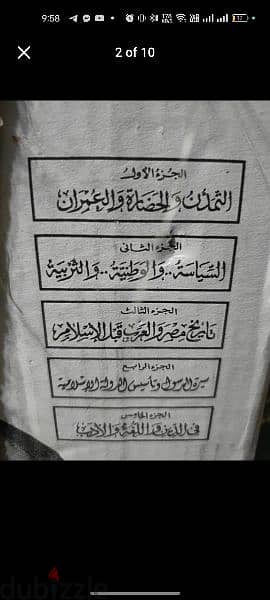 9:58
2 of 10
الجزء الأول
التمدن والحضارة والعمران
الجزء الثاني
السياسة.. والوطنية.. والتربية
الجزء الثالث
تاريخ مصر والعرب قبل الإسلام
الجزء الرابع
سيرة الرسول وتأسيس الدولة الإسلامية
الجزء الخامس
في الدين واللغة والأدب
dubizzle